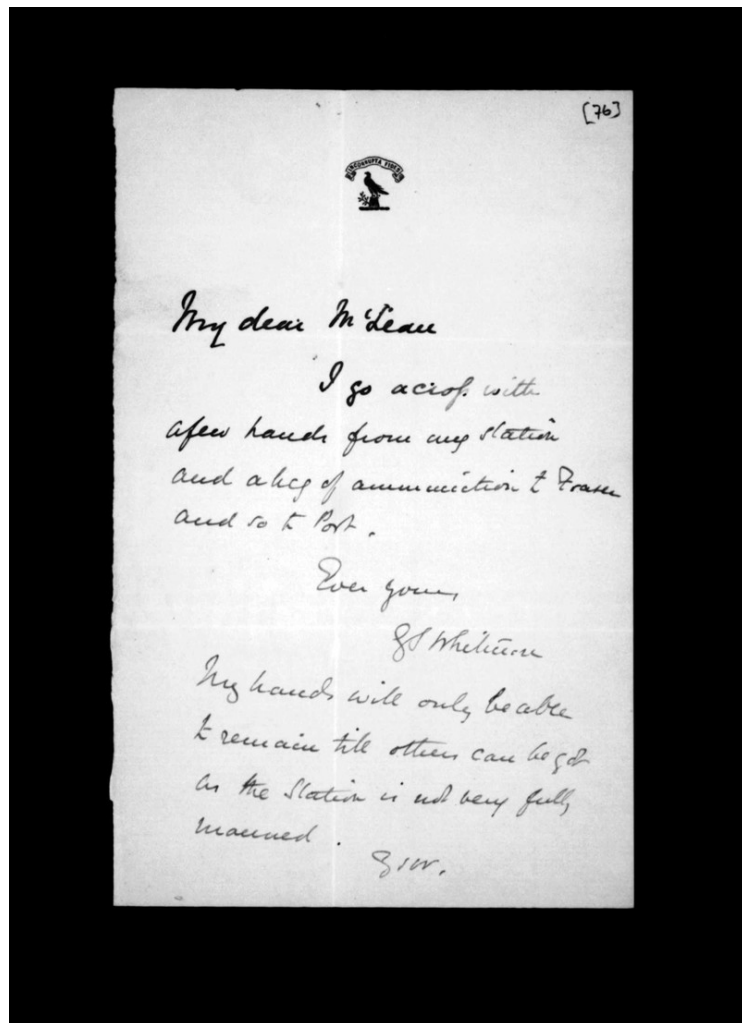 [76]
INCORRUPTA FIDES
My dear McLean
I go across with
a few hands from my station
and a keg of ammunition to Fraser
and so to Port.
Ever yours
GS Whitmore
My hands will only be able
to remain till others can be got
as the Station is not very fully
manned.
GSW.